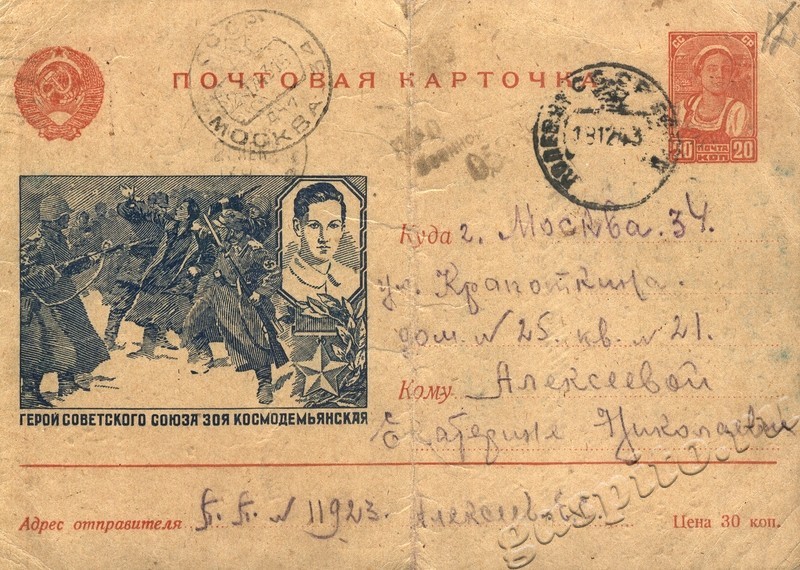 ПОЧТОВАЯ КАРТОЧКА
СС СР
ПОЧТА
20 КОП 20
МОСКВА
18 12 43
Куда г. Москва. 34.
ул. Крапоткина.
дом. № 25. кв. № 21.
Кому Алексеевой
Екатерине Николаевне
ГЕРОЙ СОВЕТСКОГО СОЮЗА ЗОЯ КОСМОДЕМЬЯНСКАЯ
Адрес отправителя П. П. № 11923. Алексеев
Цена 30 коп.